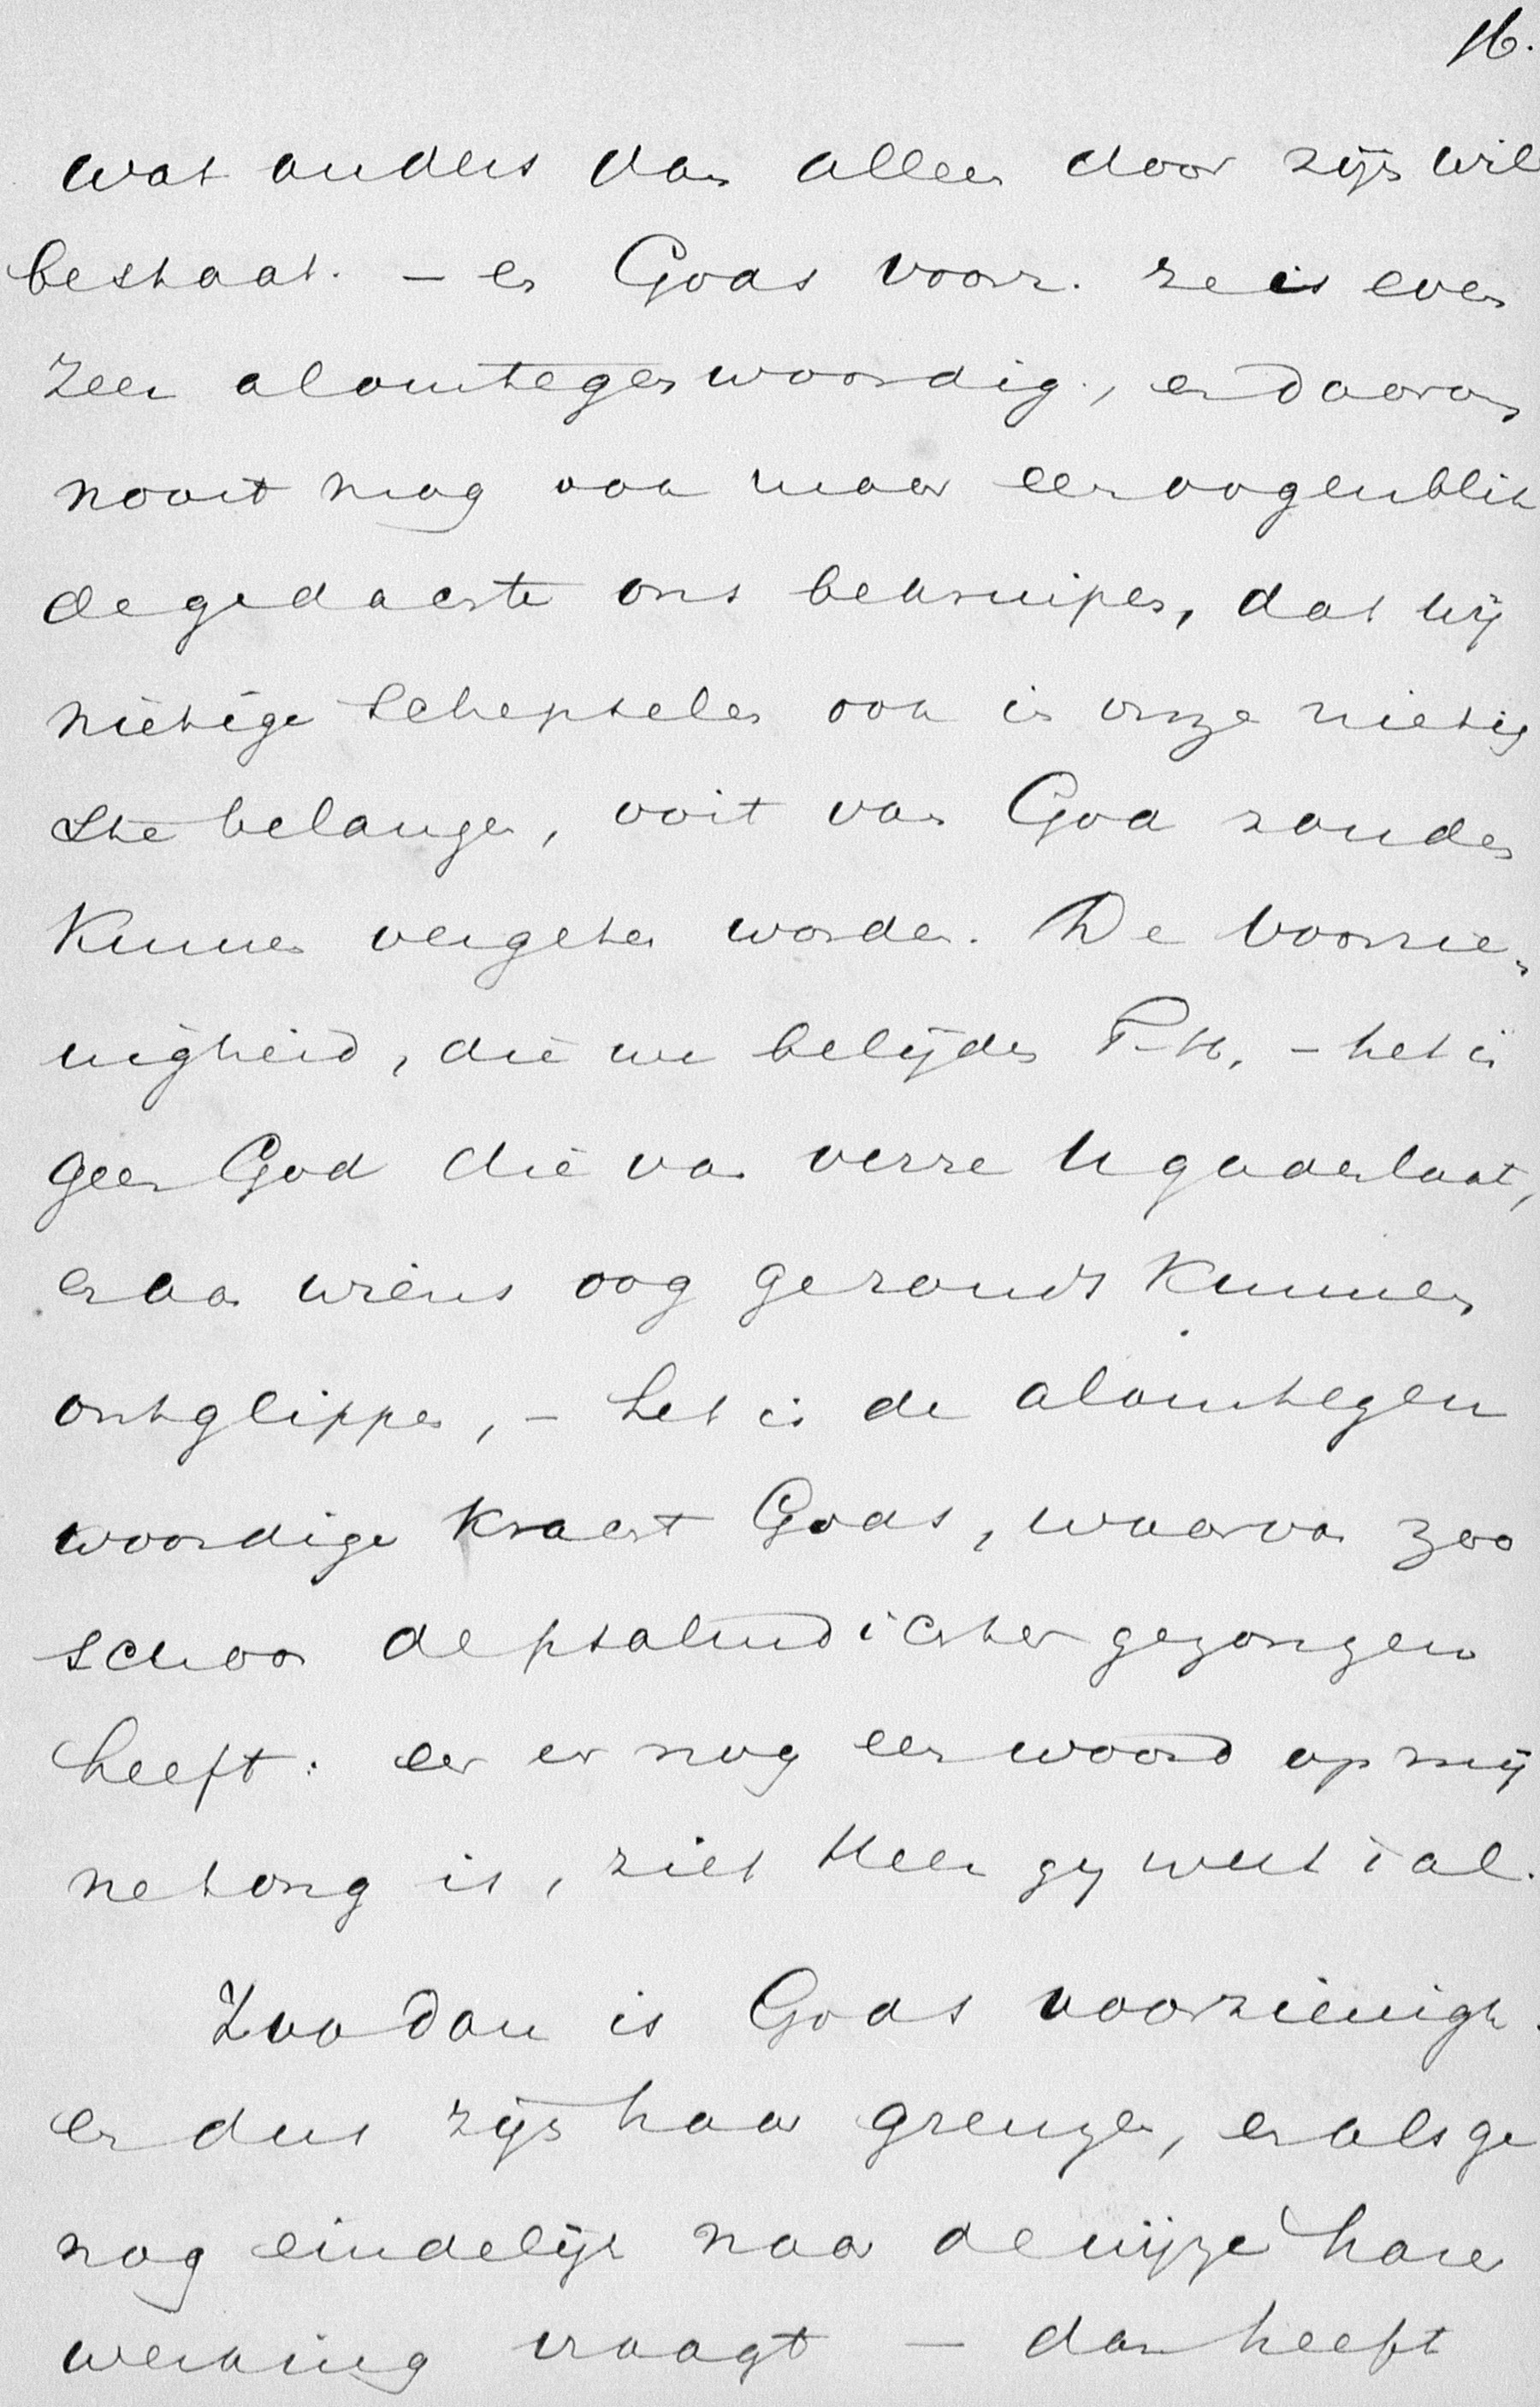 16.
wat anders dan alleen door zijn wil
bestaat. – en Gods voorz. ze is even
zeer alomtegenwoordig, en daarom
nooit mag ook maar een oogenblik
de gedachte ons bekruipen, dat wij
nietige schepselen ook in onze nietig
ste belangen, ooit van God zouden
kunnen vergeten worden. De voorzie-
nigheid, die we belijden T. H. – het is
geen God die van verre U gadeslaat,
en aan wiens oog ge zoudt kunnen
ontglippen, – het is de alomtegen
woordige kracht Gods, waarvan zoo
schoon de psalmdichter gezongen
heeft: eer er nog een woord op mij
ne tong is, ziet Heer gy weet 't al.
Zoo dan is Gods voorzienigh.
en dus zijn haar grenzen, en als ge
nog eindelijk naar de wijze harer
werking vraagt – dan heeft